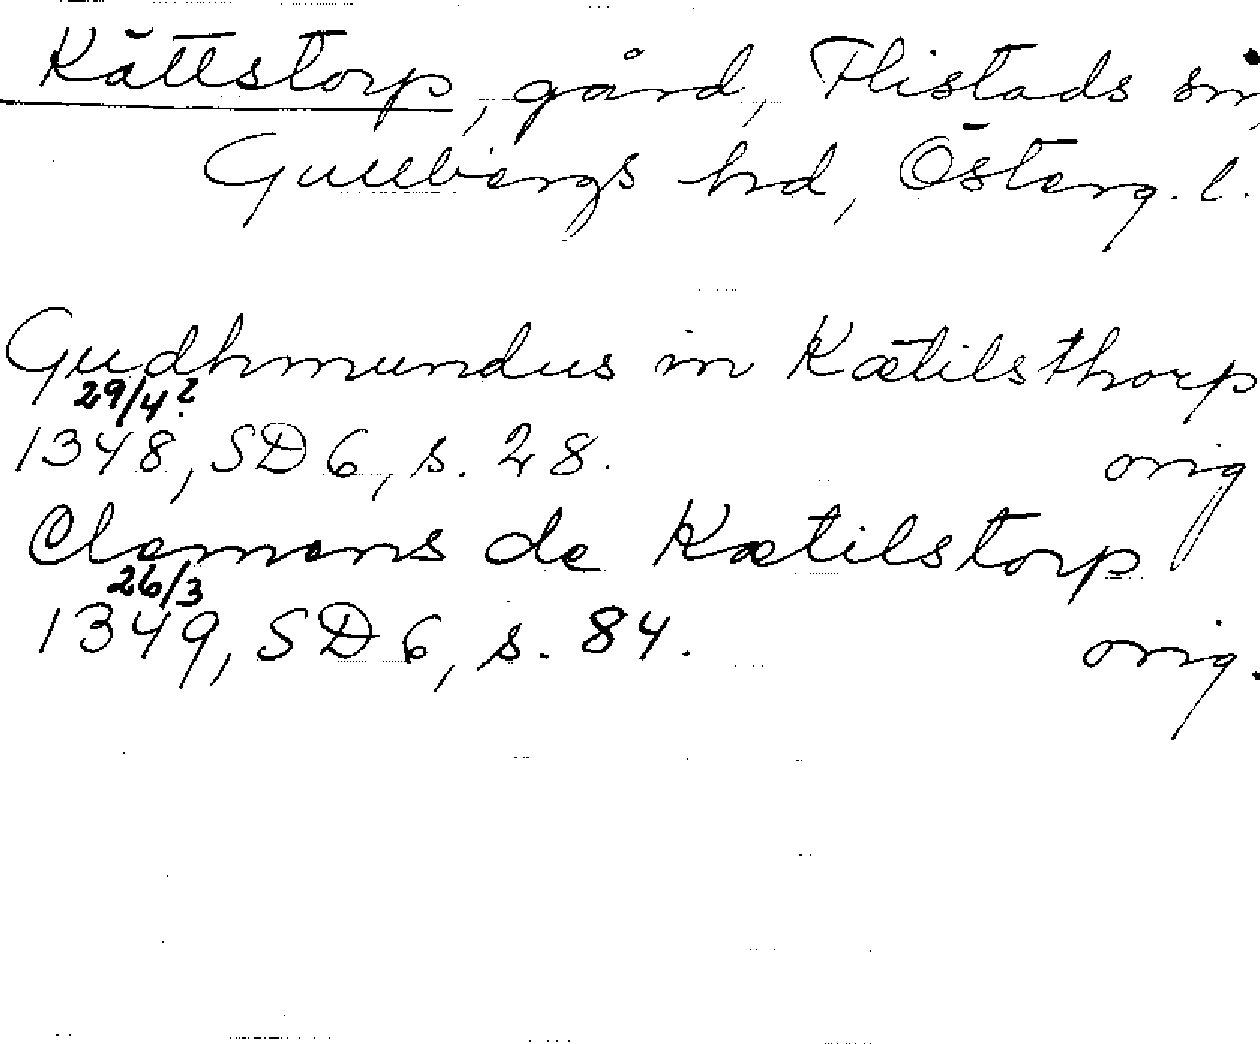 Kättstorp, gård, Flistads sn,
Gullbergs hd, Österg. l.
Gudhmundus in Kætilsthorp
29/4?
1348, SD 6, s. 28. orig
Clemens de Kætilstorp
26/3
1349, SD 6, s. 84. orig.